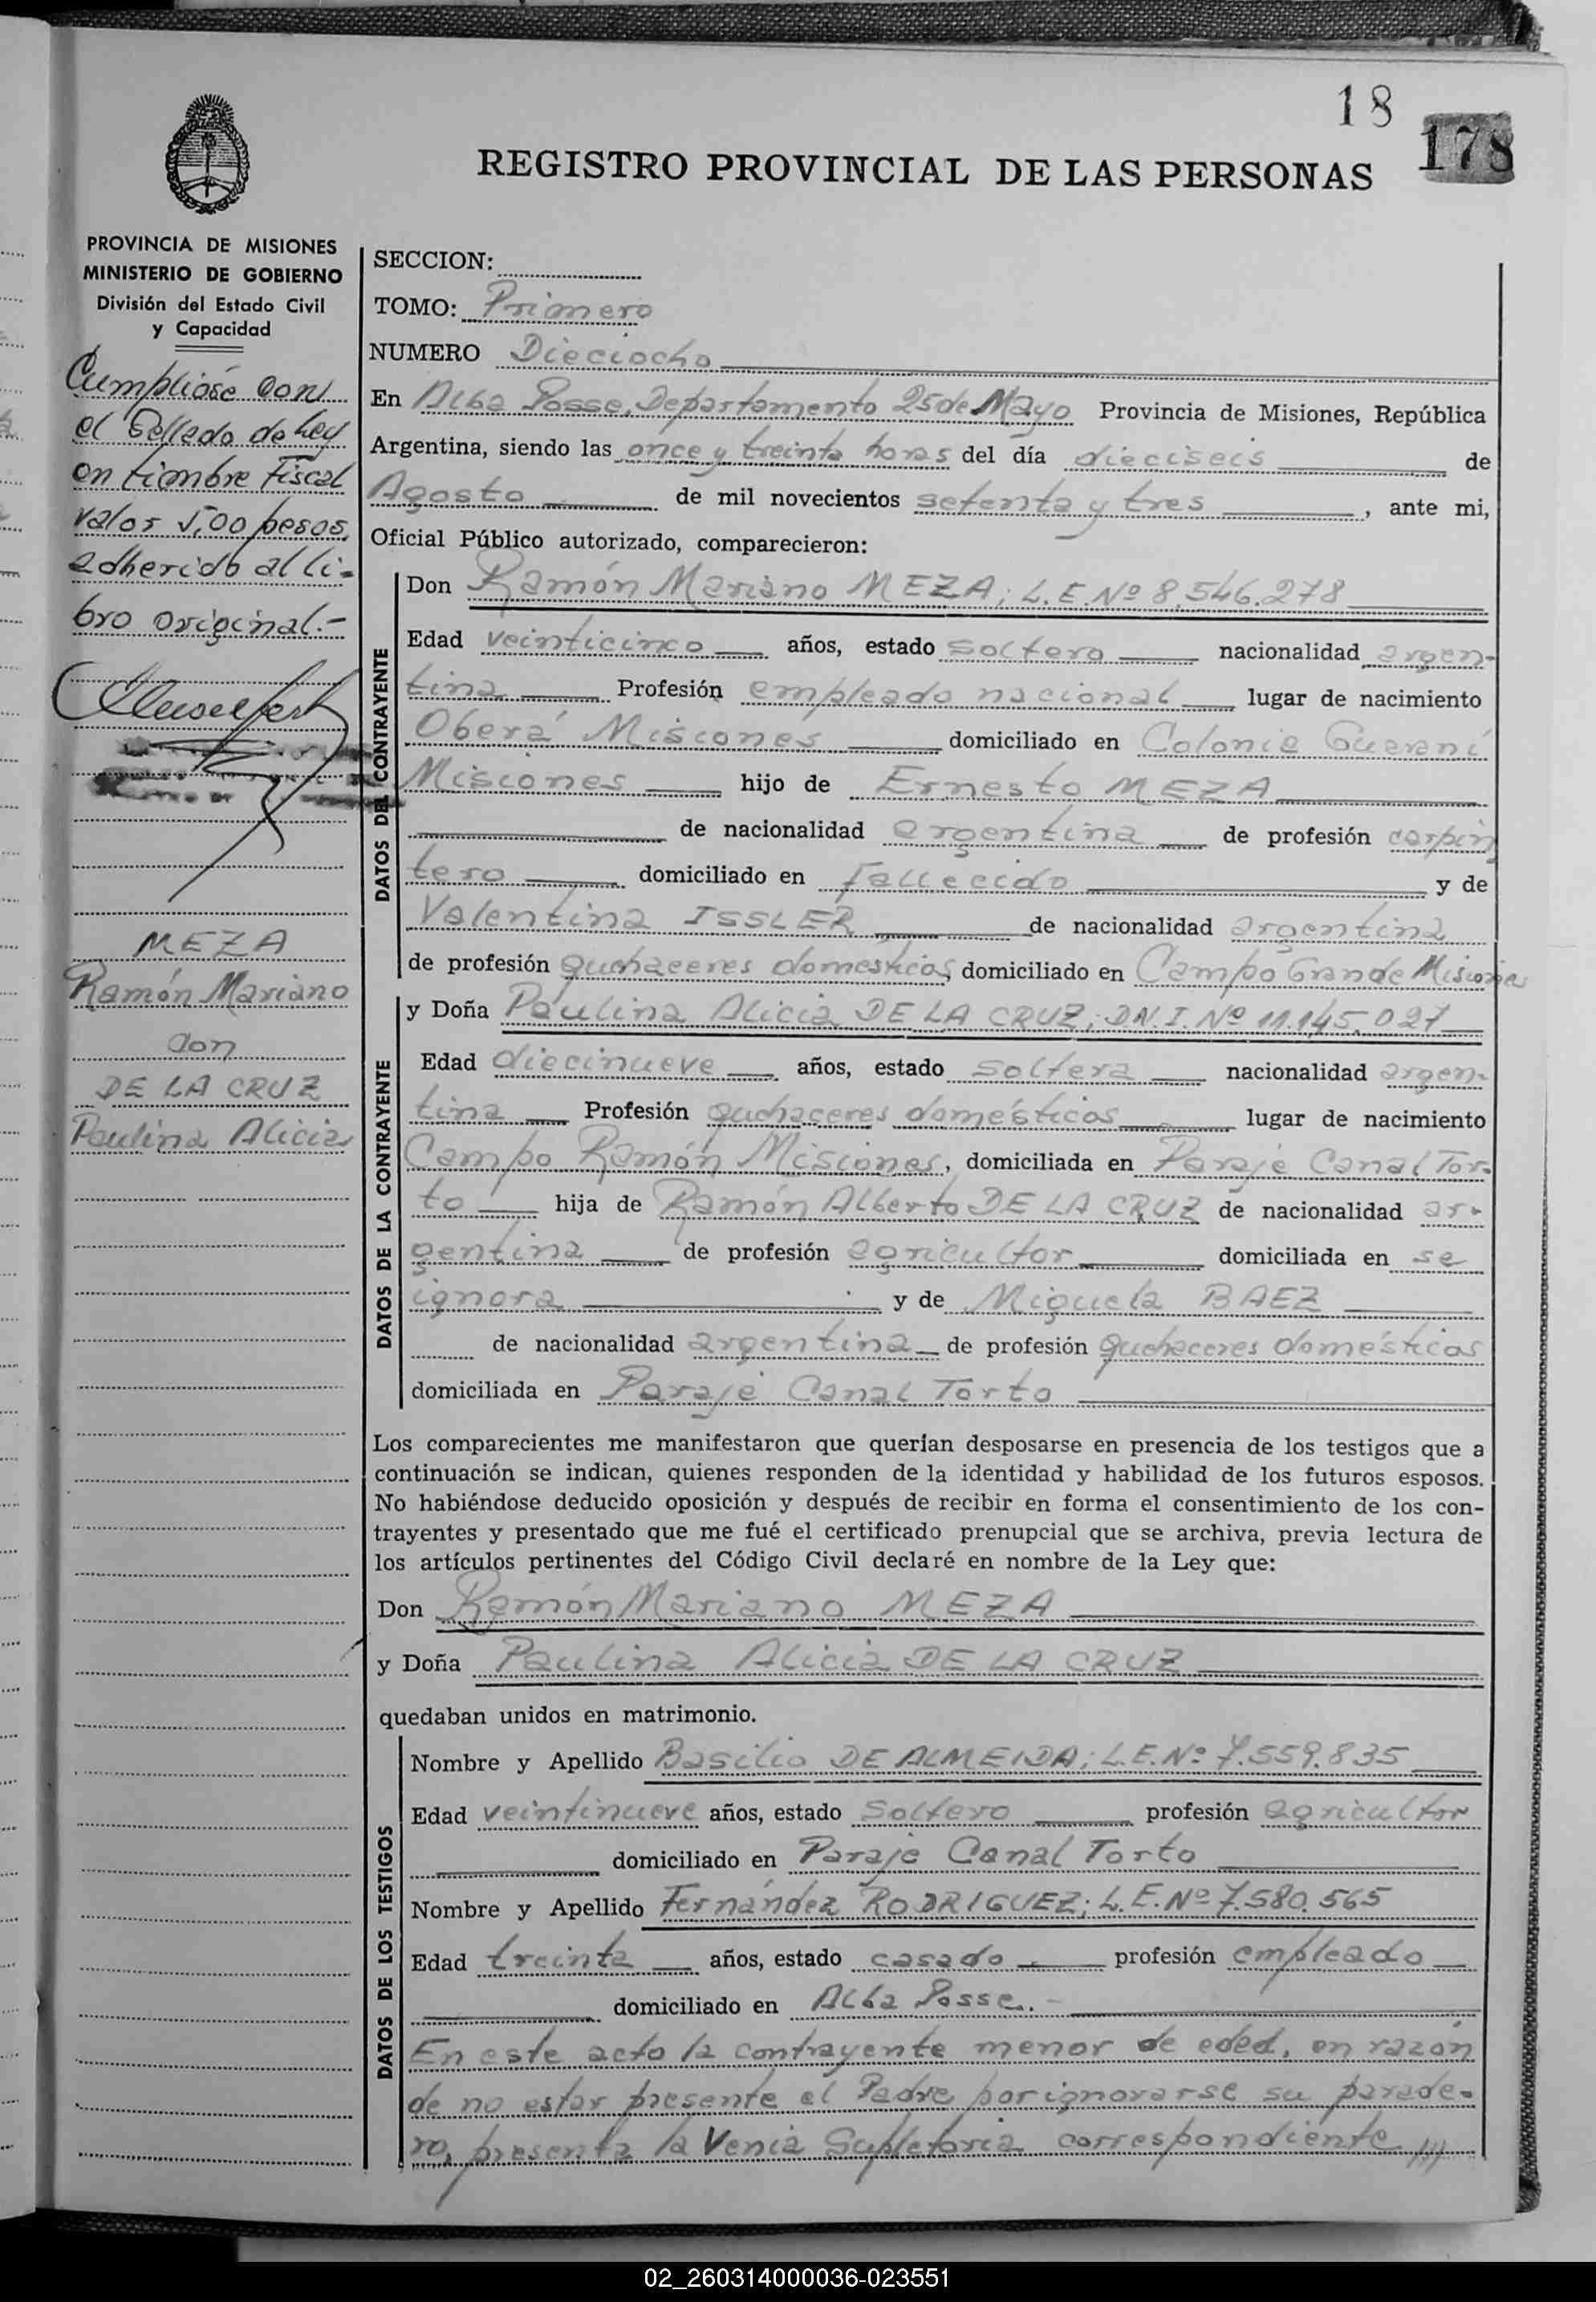 18
178
REGISTRO PROVINCIAL DE LAS PERSONAS
PROVINCIA DE MISIONES
MINISTERIO DE GOBIERNO
División del Estado Civil
y Capacidad
Cumplióse con
el Sellado de Ley
en timbre Fiscal
valor 5,00 pesos,
adherido al li-
bro original.-
MEZA
Ramón Mariano
con
DE LA CRUZ
Paulina Alicia
SECCION:
TOMO: Primero
NUMERO Dieciocho
En Alba Posse, Departamento 25 de Mayo Provincia de Misiones, República
Argentina, siendo las once y treinta horas del día dieciseis de
Agosto de mil novecientos setenta y tres, ante mi,
Oficial Público autorizado, comparecieron:
DATOS DEL CONTRAYENTE
Don Ramón Mariano MEZA; L.E.Nº 8.546.278
Edad veinticinco años, estado soltero nacionalidad argen-
tina Profesión empleado nacional lugar de nacimiento
Oberá Misiones domiciliado en Colonia Guaraní
Misiones hijo de Ernesto MEZA
de nacionalidad argentina de profesión carpin
tero domiciliado en fallecido y de
Valentina ISSLER de nacionalidad argentina
de profesión quehaceres domésticos, domiciliado en Campo Grande Misiones
DATOS DE LA CONTRAYENTE
y Doña Paulina Alicia DE LA CRUZ; D.N.I. Nº 11.145.027
Edad diecinueve años, estado soltera nacionalidad argen-
tina Profesión quehaceres domésticos lugar de nacimiento
Campo Ramón Misiones, domiciliada en Paraje Canal Tor-
to hija de Ramón Alberto DE LA CRUZ de nacionalidad ar-
gentina de profesión agricultor domiciliada en se
ignora y de Miguela BAEZ
de nacionalidad argentina de profesión quehaceres domésticos
domiciliada en Paraje Canal Torto
Los comparecientes me manifestaron que querían desposarse en presencia de los testigos que a
continuación se indican, quienes responden de la identidad y habilidad de los futuros esposos.
No habiéndose deducido oposición y después de recibir en forma el consentimiento de los con-
trayentes y presentado que me fué el certificado prenupcial que se archiva, previa lectura de
los artículos pertinentes del Código Civil declaré en nombre de la Ley que:
Don Ramón Mariano MEZA
y Doña Paulina Alicia DE LA CRUZ
quedaban unidos en matrimonio.
DATOS DE LOS TESTIGOS
Nombre y Apellido Basilio DE ALMEIDA; L.E.Nº 7.559.835
Edad veintinueve años, estado soltero profesión agricultor
domiciliado en Paraje Canal Torto
Nombre y Apellido Fernández RODRIGUEZ; L.E.Nº 7.580.565
Edad treinta años, estado casado profesión empleado
domiciliado en Alba Posse.-
En este acto la contrayente menor de edad, en razón
de no estar presente el Padre por ignorarse su parade-
ro, presenta la Venia Supletoria correspondiente ///
02_260314000036-023551